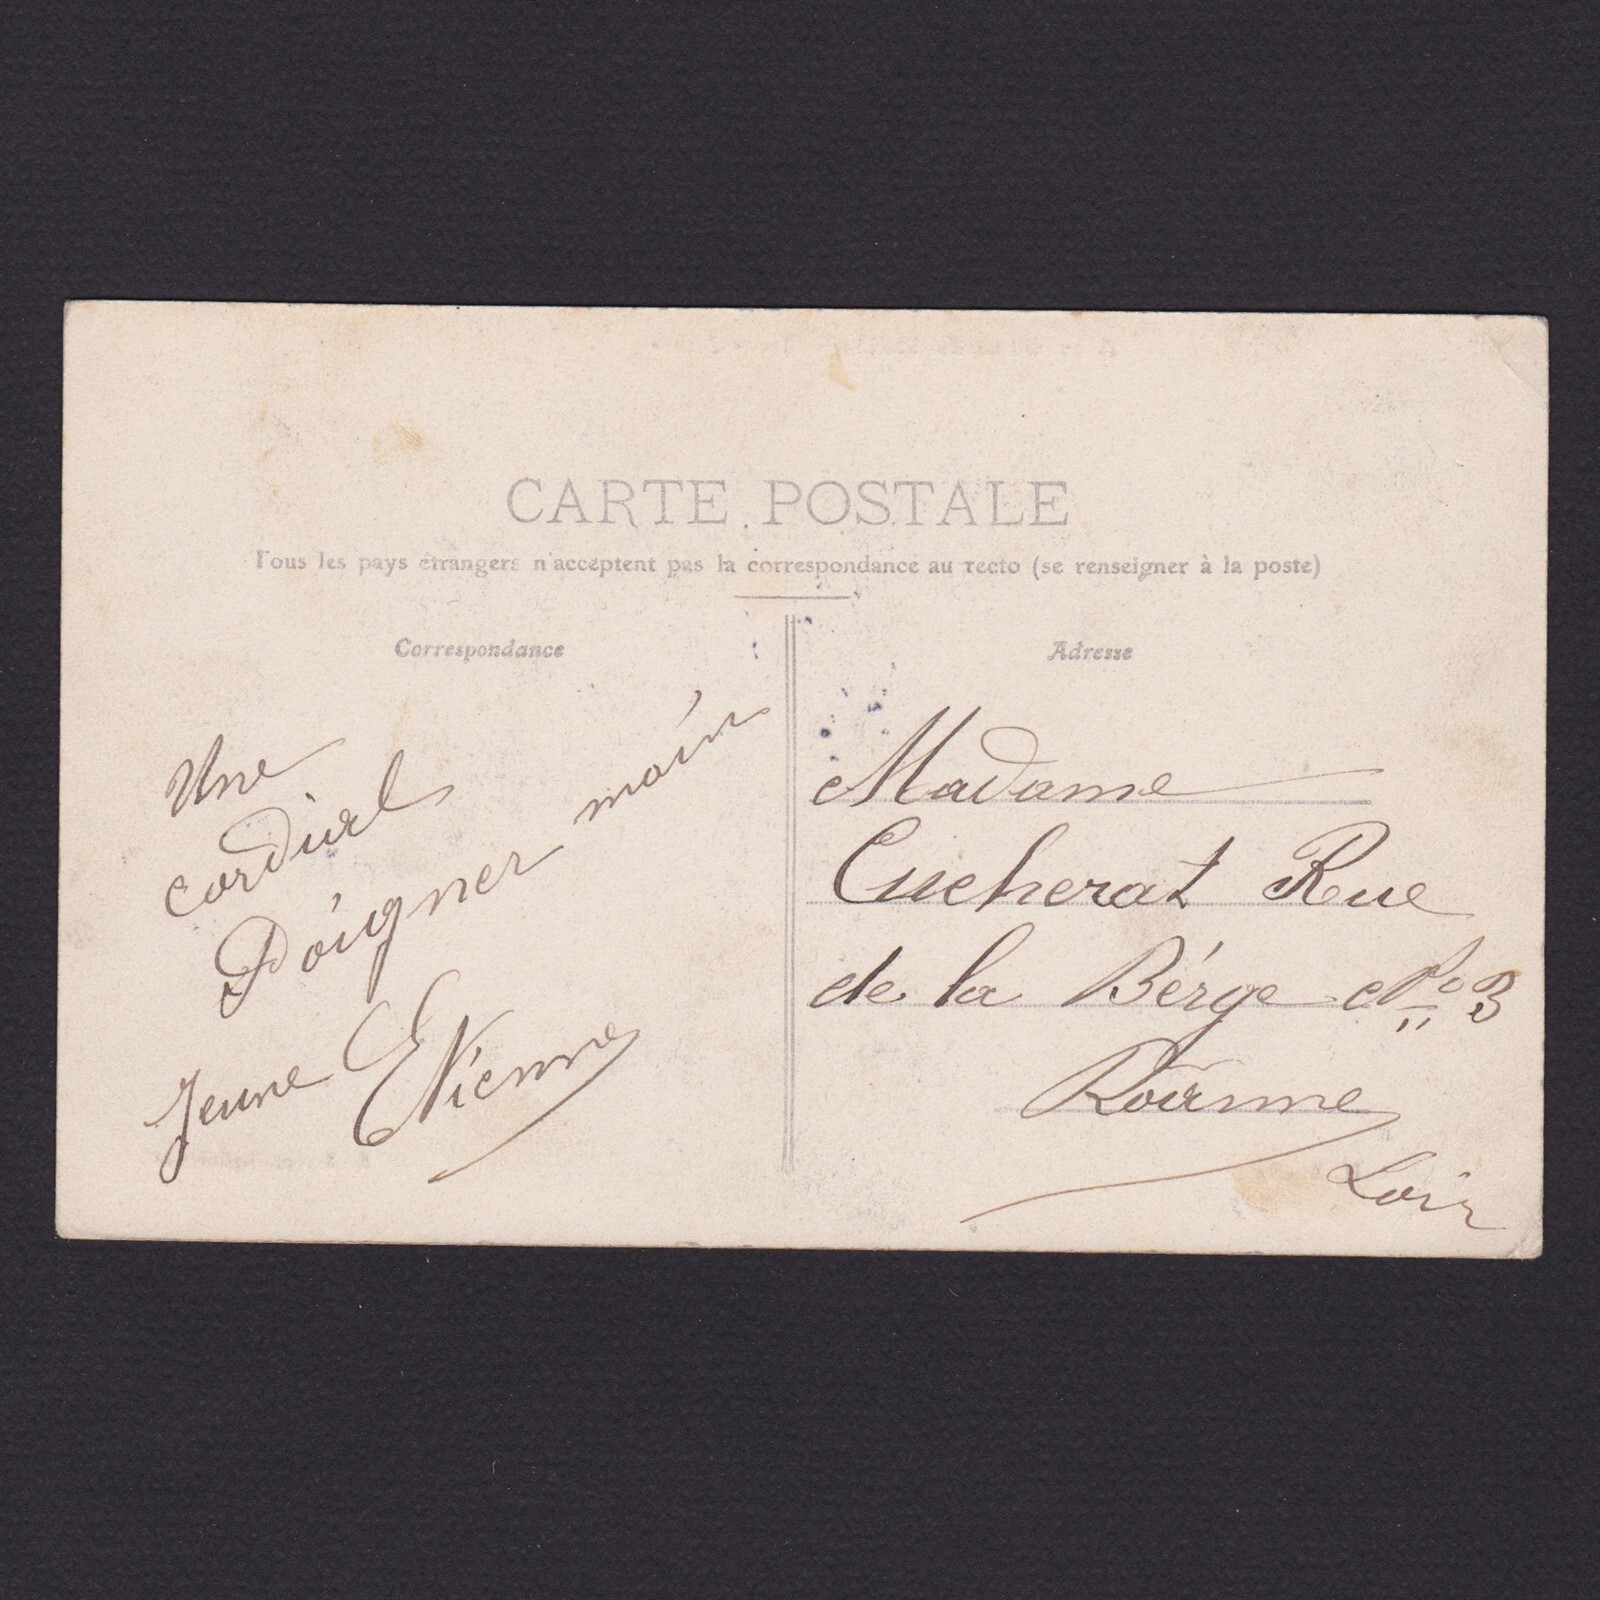 CARTE POSTALE
Tous les pays étrangers n'acceptent pas la correspondance au recto (se renseigner à la poste)
Correspondance
Une
cordial
Poigner main
Jeune Etienne
Adresse
Madame
Cucherat Rue
de la Bérge No 3
Roanne
Loir